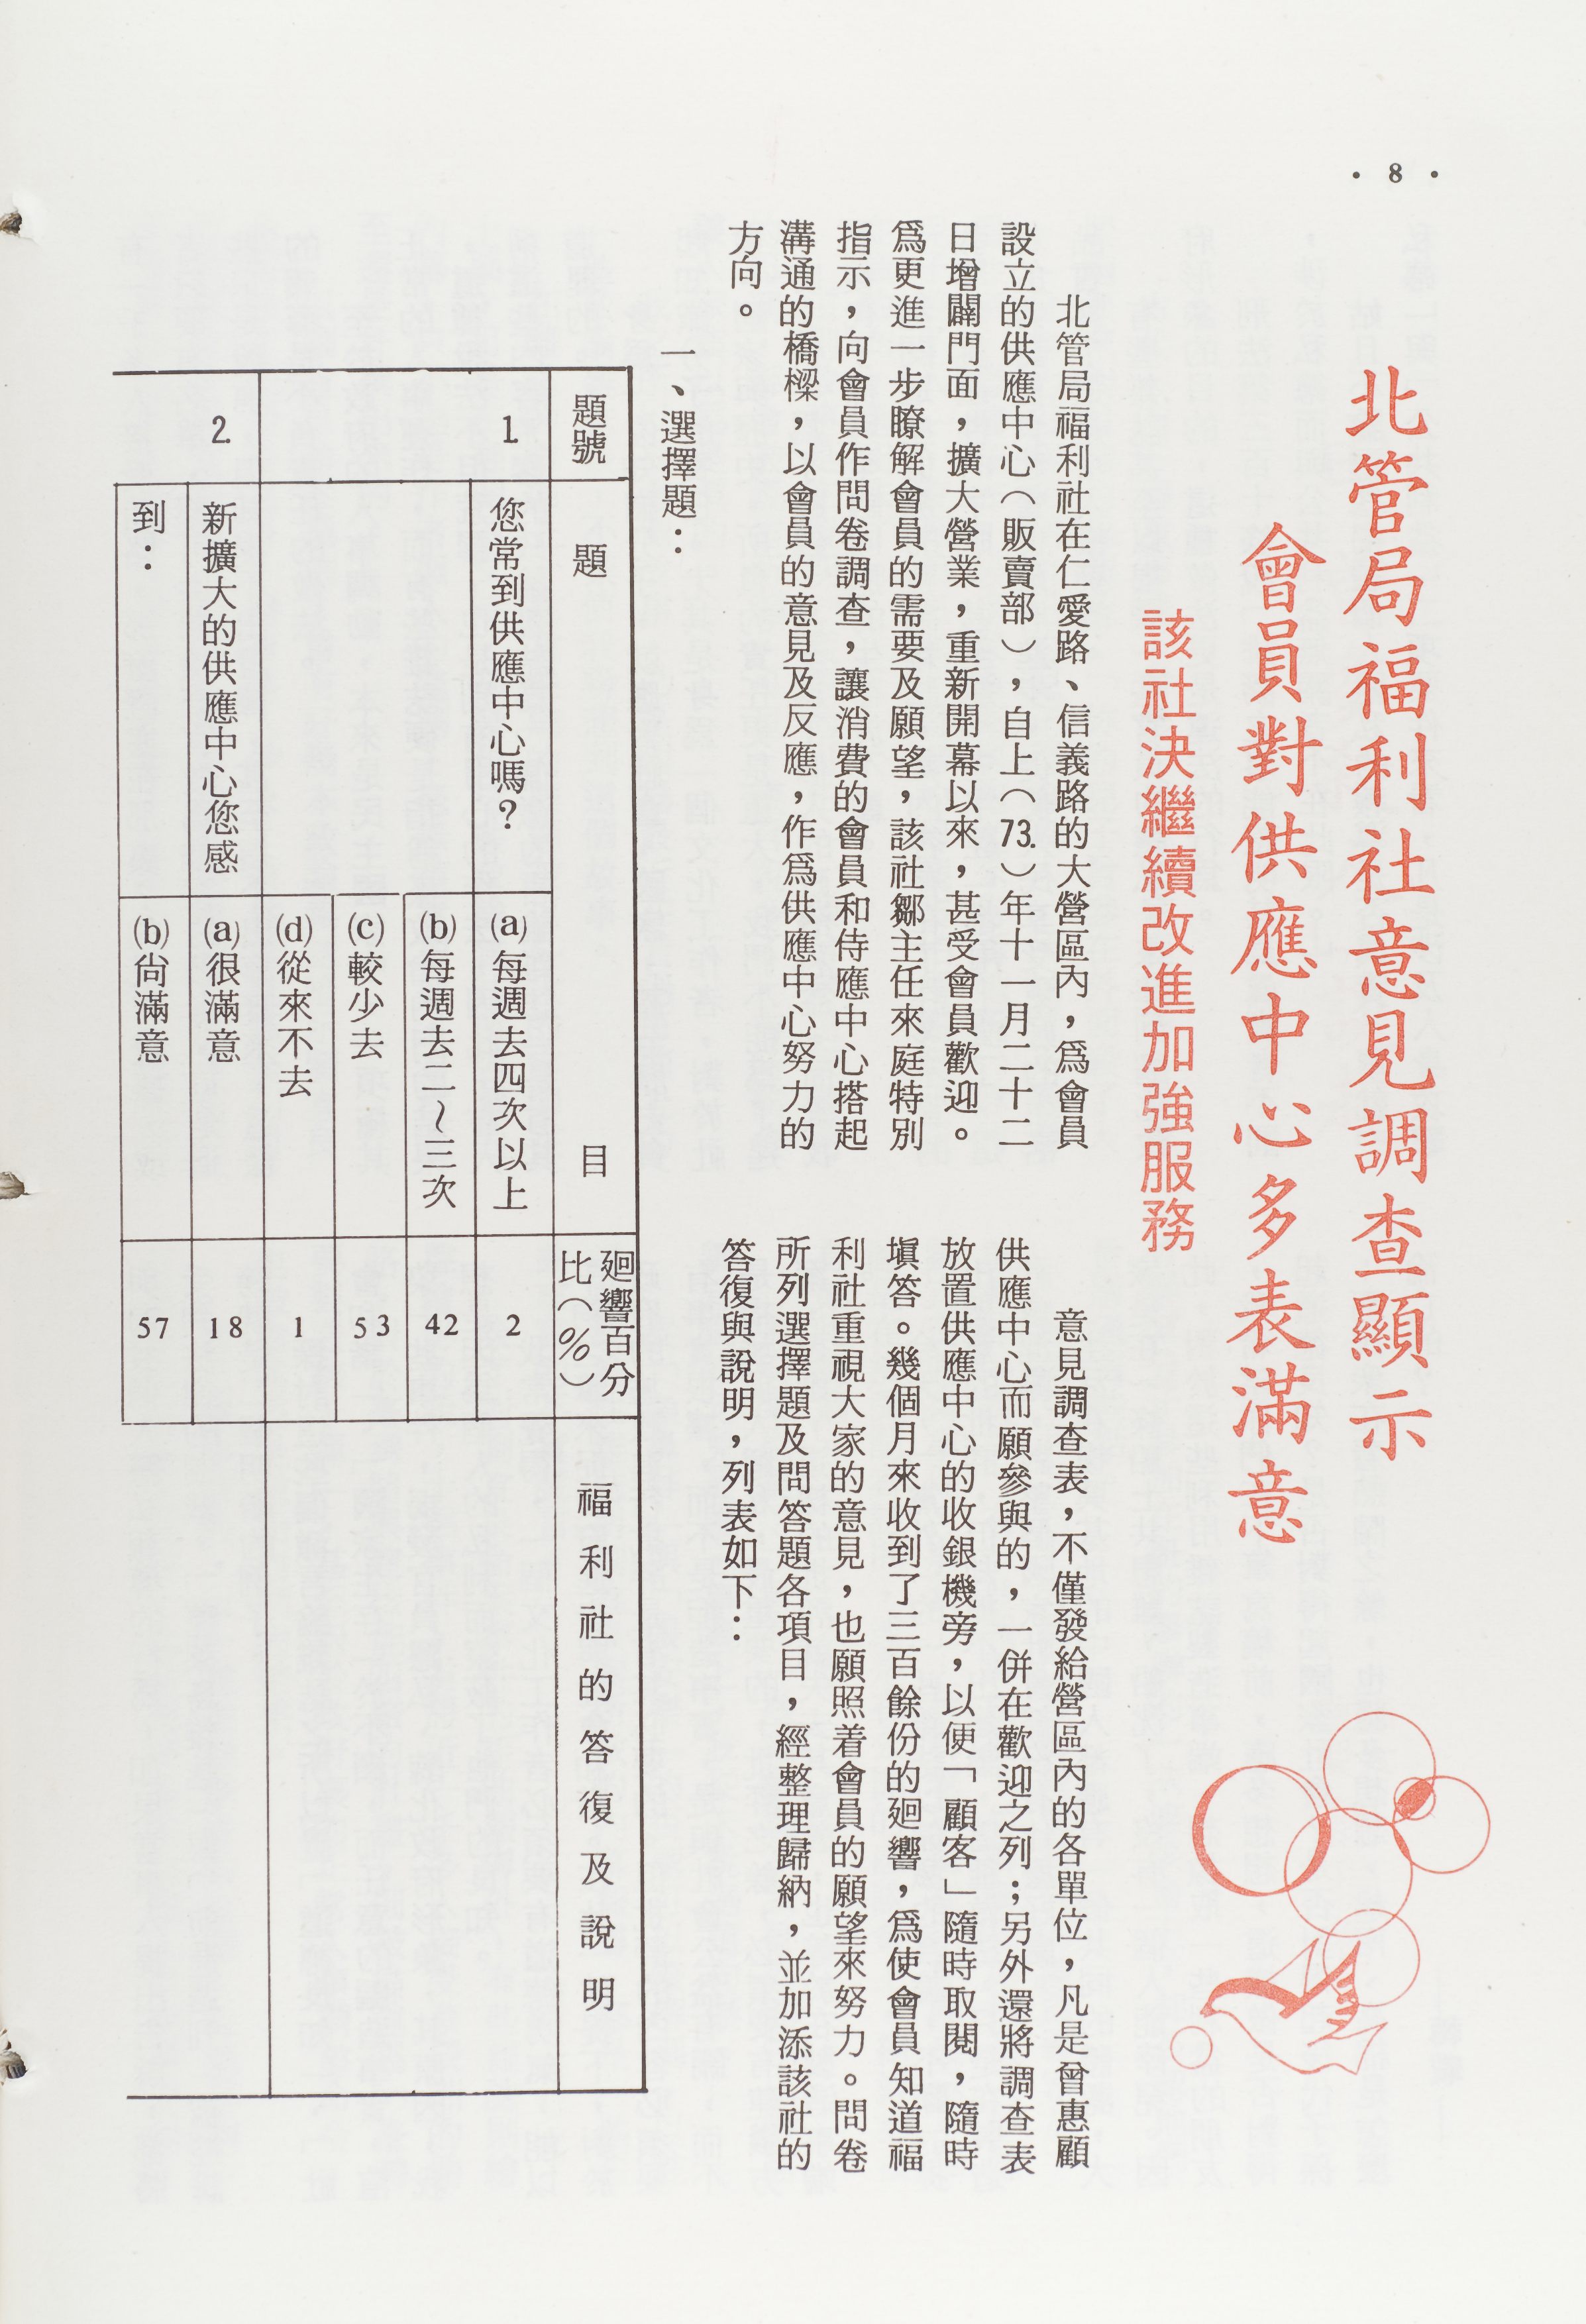 · 8 ·
北管局福利社意見調查顯示
會員對供應中心多表滿意
該社決繼續改進加強服務
北管局福利社在仁愛路、信義路的大營區內，爲會員
設立的供應中心（販賣部），自上（73.）年十一月二十二
日增闢門面，擴大營業，重新開幕以來，甚受會員歡迎。
爲更進一步瞭解會員的需要及願望，該社鄒主任來庭特別
指示，向會員作問卷調查，讓消費的會員和侍應中心搭起
溝通的橋樑，以會員的意見及反應，作爲供應中心努力的
方向。
意見調查表，不僅發給營區內的各單位，凡是曾惠顧
供應中心而願參與的，一併在歡迎之列；另外還將調查表
放置供應中心的收銀機旁，以便「顧客」隨時取閱，隨時
塡答。幾個月來收到了三百餘份的廻響，爲使會員知道福
利社重視大家的意見，也願照着會員的願望來努力。問卷
所列選擇題及問答題各項目，經整理歸納，並加添該社的
答復與說明，列表如下：
一、選擇題：
題號
題目
廻響百分
比（％）
福利社的答復及說明
1.
您常到供應中心嗎？
(a)每週去四次以上
2
(b)每週去二～三次
42
(c)較少去
53
(d)從來不去
1
2.
新擴大的供應中心您感
到：
(a)很滿意
18
(b)尙滿意
57